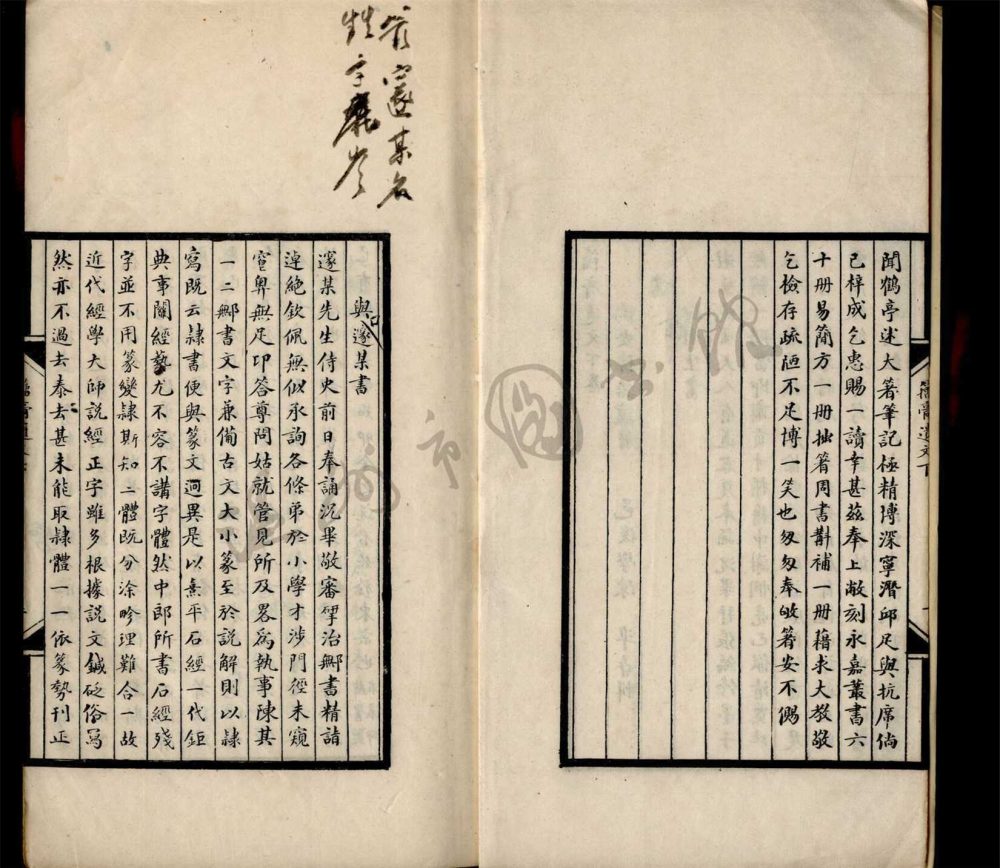 聞鶴亭述大著筆記極精博深寧潛邱足與抗席倘
已梓成乞惠賜一讀幸甚茲奉上敝刻永嘉叢書六
十册易簡方一册拙箸周書斠補一册藉求大教敬
乞檢存疏陋不足博一笑也匆匆奉敂箸安不僃
遺文下
邃某名
字
與邃某書
邃某先生侍史前日奉誦沉畢敬審揅治鄦書精詣
連絶欽佩無似承詢各條弟於小學才涉門徑未窺
窔奥無足卬答尊問姑就管見所及畧爲執事陳其
一二鄦書文字兼備古文大小篆至於説解則以隷
寫既云隷書便與篆文迥異是以熹平石經一代鉅
典事關經藝尤不容不講字體然中郎所書石經殘
字並不用篆變隷斯知二體既分涂畛理難合一故
近代經學大師説經正字雖多根據説文鍼砭俗寫
然亦不過去泰去甚未能取隷體一一依篆勢刊正
市图书馆